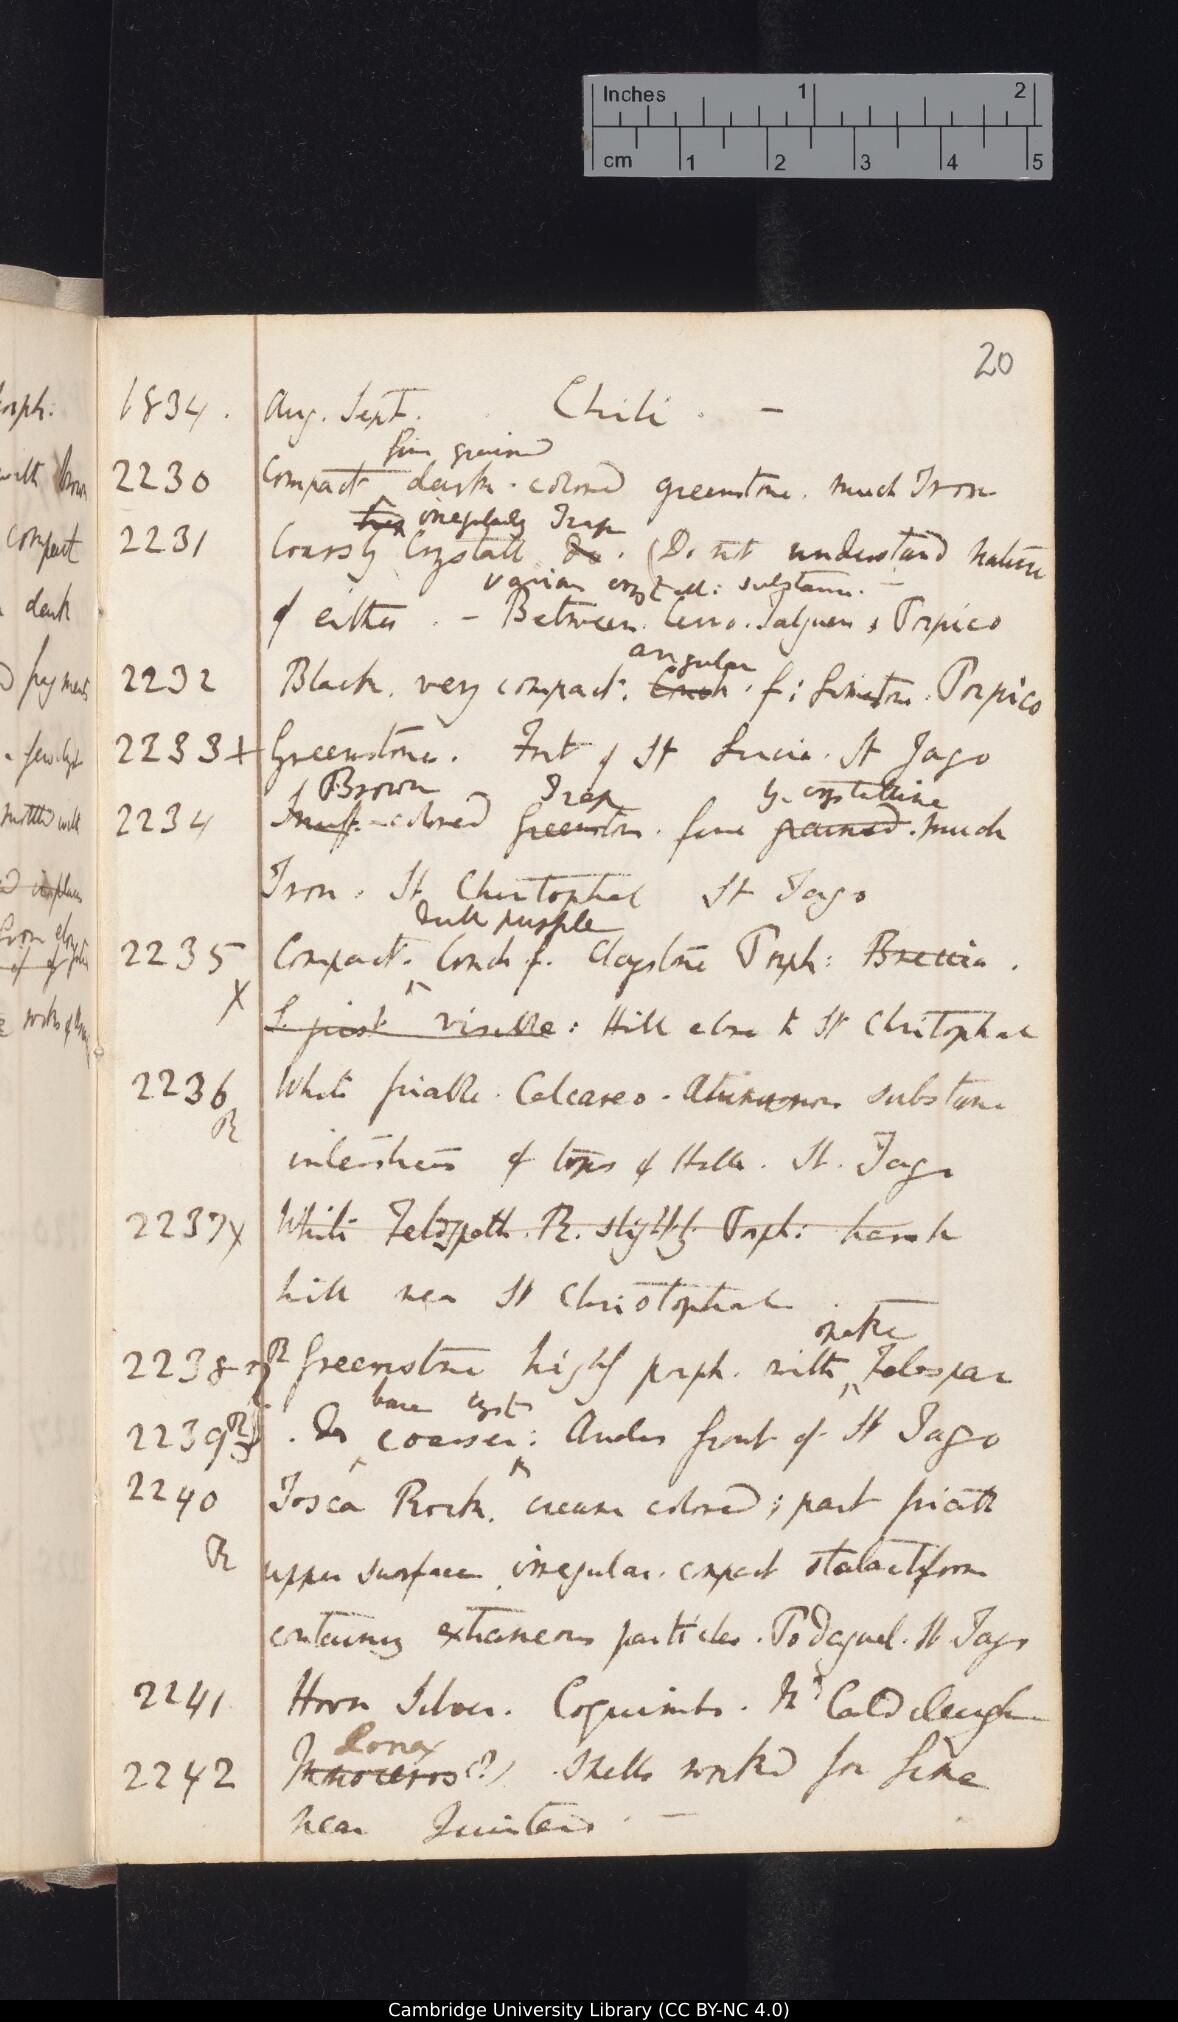 Inches 1 2
cm 1 2 3 4 5
20
1834. Aug. Sept. Chili. —
fine grained
2230 Compact dark-colored greenstone. much Iron
irregularly Trap
2231 Coarsly Crystall Do. (Do not understand nature
various crystall: substance. —
of either. — Between Cerro. Talguen & Porpico
angular
2232 Black. very compact. Conch. f: Limestone. Porpico
2233 + Greenstone. Fort of St Lucia. St Jago
Brown Trap crystalline
2234 Snuff-colored Greenstone. fine grained. much
Iron. St Christophal St Jago
dull purple
2235 Compact. Conch f. Claystone Porph: Breccia.
X
just visible: Hill close to St Christophal
2236 White friable. Calcareo-Aluminous substance
R
interstices of tops of Hills. St. Jago
2237 X White Feldspath. R. slightly Porph: harsh
hill near St Christophal
opake
2238 R Greenstone highly porph. with Felspar
base cryst
2239 R . Do coarser: Andes front of St Jago
2240 Tosca Rock. cream colored; part friable
R
upper surface irregular. compact stalactiform
containing extraneous particles. Podaguel. St Jago
2241 Horn Silver. Coquimbo. Mr Caldcleugh
Donax
2242 Monoceros (?) Shells worked for lime
near Quintero. —
orph:
with brown
compact
dark
mottled with
Cambridge University Library (CC BY-NC 4.0)